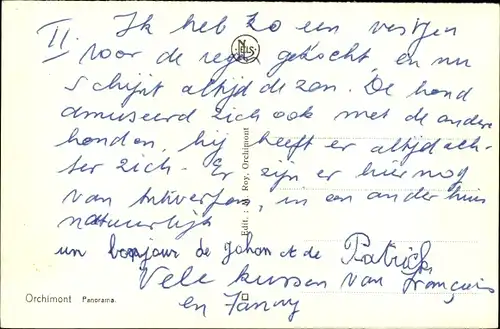 II. Ik heb zo een vestjen
voor de regen gekocht, en nu
schijnt altijd de zon. De hond
amuseerd zich ook met de andere
honden, hij heeft er altijd ach-
ter zich. Er zijn er hier nog
van Antwerpen, in een ander huis
natuurlijk
un bonjour de Johan et de Patrick
Vele kussen van François
en Fanny
NELS
Edit.: Roy, Orchimont
Orchimont Panorama.